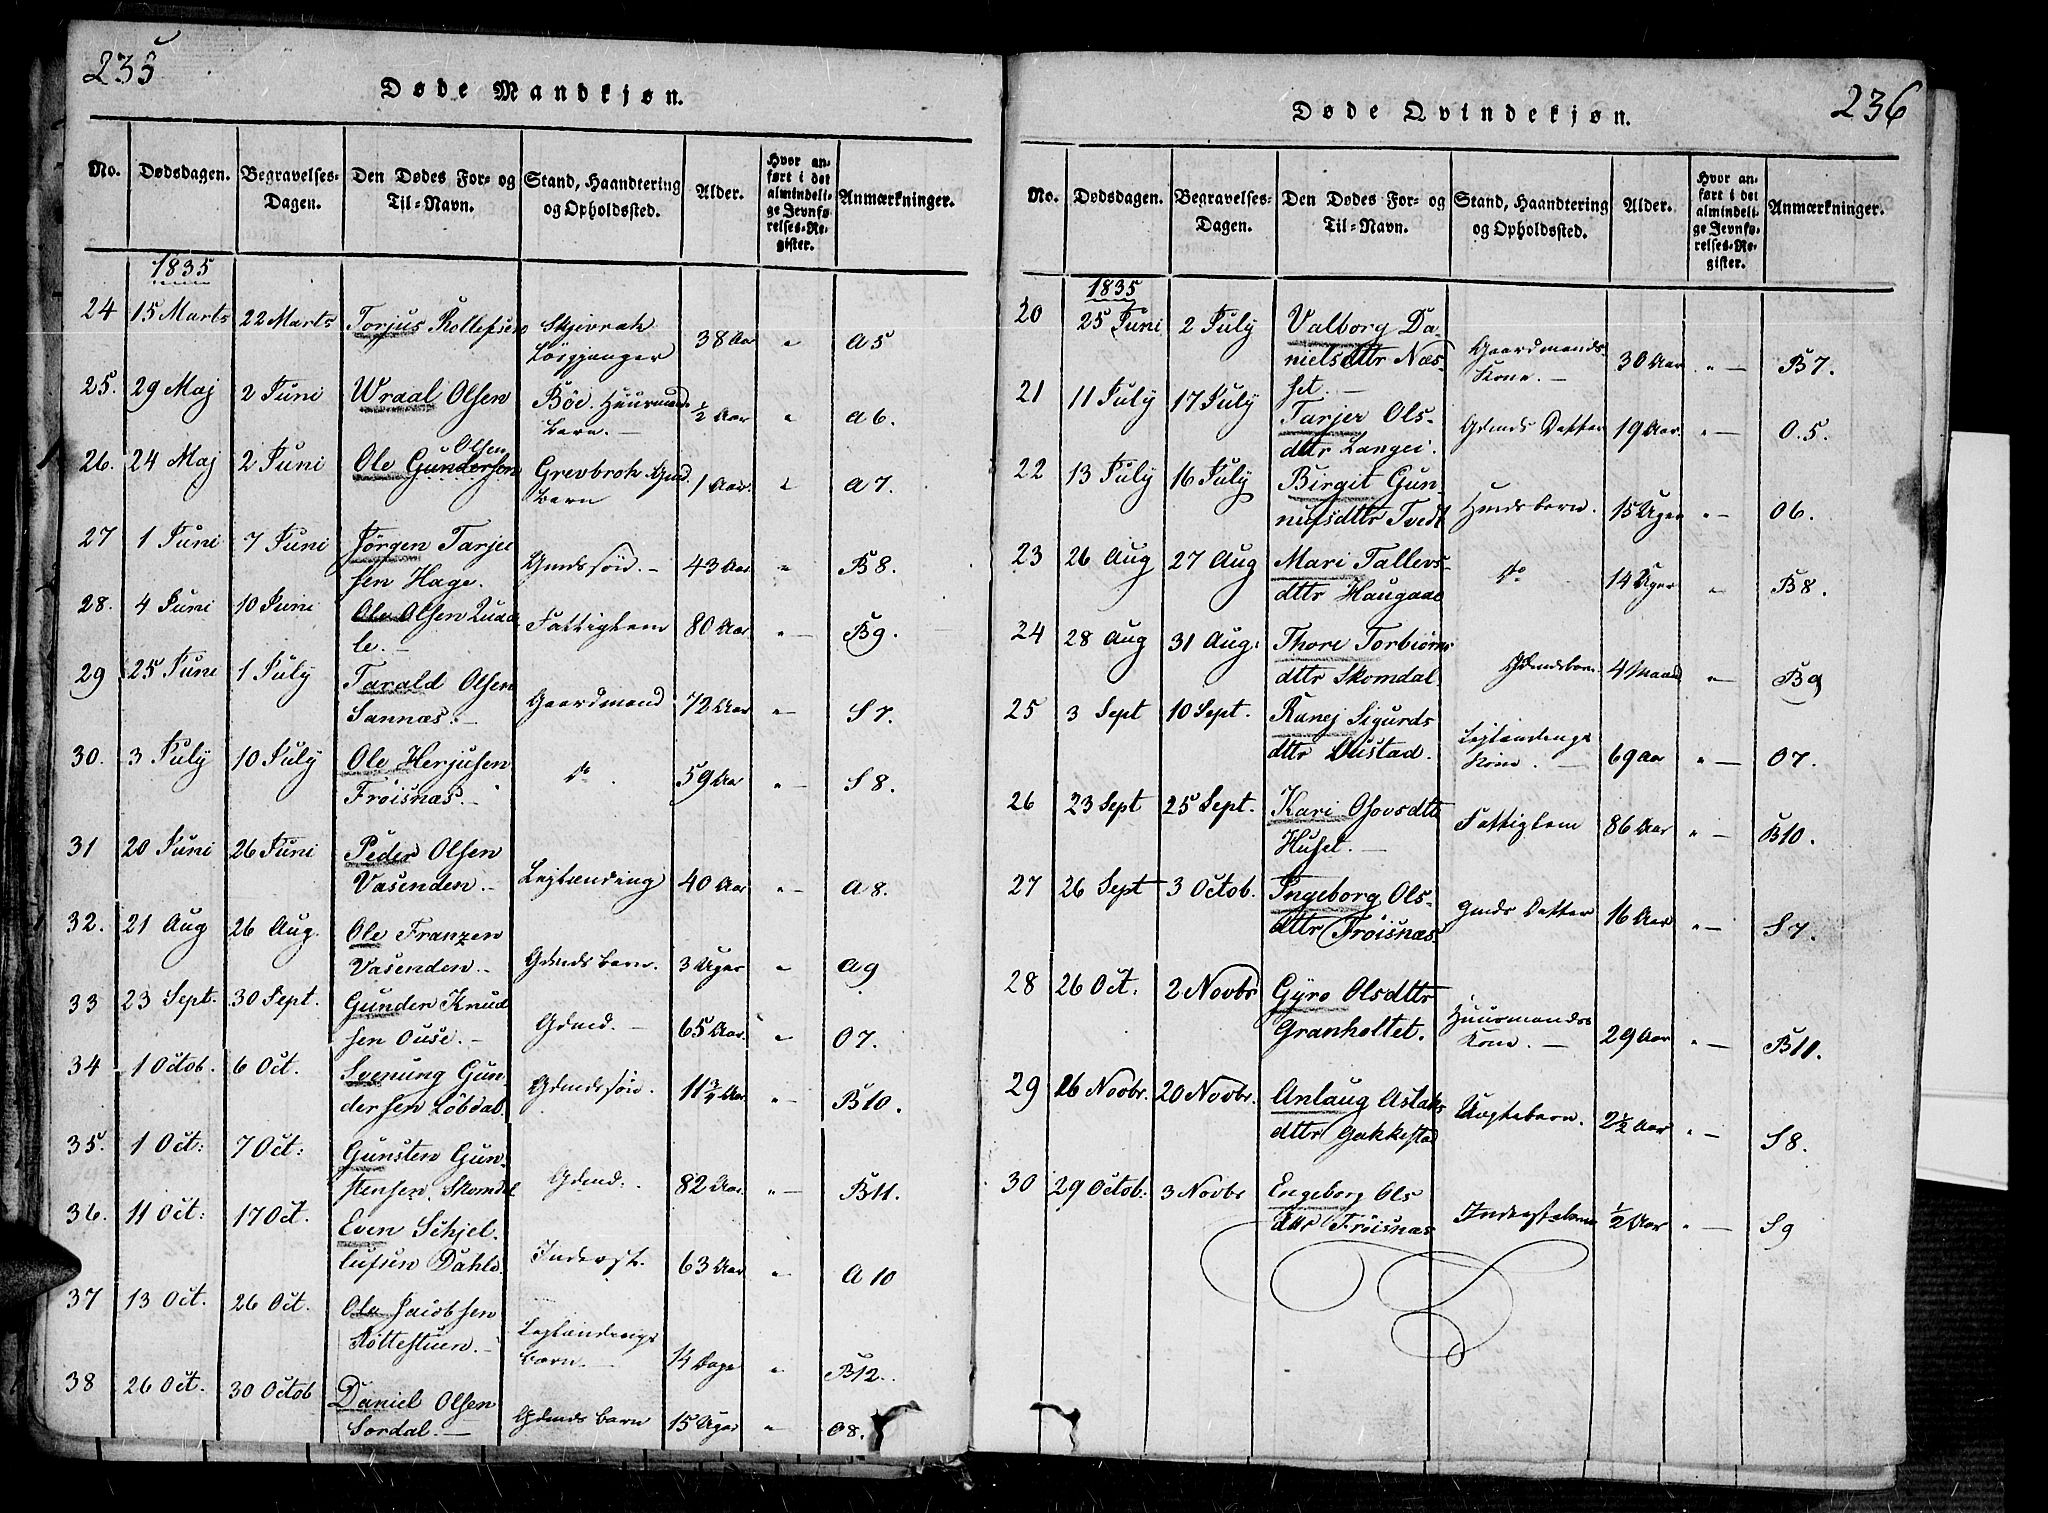 235
Døde Mandkjøn.
No. Dødsdagen. Begravelses-Dagen. Den Dødes For- og Til-Navn. Stand, Haandtering og Opholdssted. Alder. Hvor anført i det almindelige Jevnførelses-Register. Anmærkninger.
1835
24 15 Marts 22 Marts Torjus Rollefsen Skjevrak Løsgjænger 38 Aar " A 5
25. 29 Maj 2 Juni Wraal Olsen Böe. Huusmands Barn. ½ Aar " A 6.
26. 24 Maj 2 Juni Ole Gundersen Olsen Grevbrok Barn 1 Aar. " A 7.
27 1 Juni 7 Juni Jørgen Tarjei
sen Hage. Gmdssön. 43 Aar " B 8.
28. 4 Juni 10 Juni Ole Olsen Quaa
le. Fattiglem 80 Aar " B 9.
29 25 Juni 1 July Tarald Olsen
Sannæs. Gaardmand 72 Aar " S 7.
30. 3 July 10 July Ole Herjusen
Fröisnæs. do. 59 Aar " S 8.
31 20 Juni 26 Juni Peder Olsen
Vasenden. Lejlænding 40 Aar " A 8.
32. 21 Aug 26 Aug. Ole Franzen
Vasenden. Gdmds barn. 3 Uger " A 9
33 23 Sept. 30 Sept. Gunder Knud
sen Ouse. Gdmd. 65 Aar. " O 7.
34 1 Octob. 6 Oct. Svenung Gun-
dersen Löbdal. Gdmdssön. 11 ¾ Aar " B 10.
35. 1 Oct: 7 Oct: Gunsten Gun-
stensen. Skomdal Gdmd. 82 Aar. " B 11.
36. 11 Oct: 17 Oct. Even Schjel-
lufsen Dahle. Inderst. 63 Aar " A 10
37 13 Oct. 26 Oct. Ole Jacobsen
Röttestuen. Lejlændings
barn. 14 Dage " B 12.
38 26 Oct. 30 Octob Daniel Olsen
Sordal. Gdmds barn 15 Uger " O 8.
236
Døde Qvindekjøn.
No. Dødsdagen. Begravelses-Dagen. Den Dødes For- og Til-Navn. Stand, Haandtering og Opholdssted. Alder. Hvor anført i det almindelige Jevnførelses-Register. Anmærkninger.
1835
20 25 Juni 2 July Valborg Da-
nielsdttr Næs-
set. Gaardmands-
Kone. 30 Aar. " B 7.
21 11 July 17 July Tarjer Ols-
dttr Langei. Gdmds Datter 19 Aar. " O. 5.
22 13 July 16 July Birgit Gun-
nufsdttr Tvedt Hmds barn. 15 Uger " O 6.
23 26 Aug 27 Aug Mari Tallevs-
dttr Haugaae do 14 Uger " B 8.
24 28 Aug 31 Aug. Thore Torbiörns
dttr Skomdal. Gdmdsbarn. 4 Maan " B 9
25 3 Sept 10 Sept. Ranej Sigurds
dttr Dustad. Lejlændings
Kone. 69 Aar " O 7.
26 23 Sept 25 Sept. Kari Osovsdttr
Huset. Fattiglem 86 Aar " B 10.
27 26 Sept 3 Octob. Ingeborg Ols-
dttr Fröisnæs. gmds Datter 16 Aar " S 7.
28 26 Oct. 2 Novbr Gyro Olsdttr
Granholtet. Huusmands
Kone. 29 Aar " B 11.
29 16 Novbr. 20 Novbr. Anlaug Astaks
dttr Gakkestad Uægtebarn. 2½ Aar " S 8.
30 29 Octob: 3 Novbr Engeborg Ols
dttr Fröisnæs Inderstebarn ½ Aar " S 9